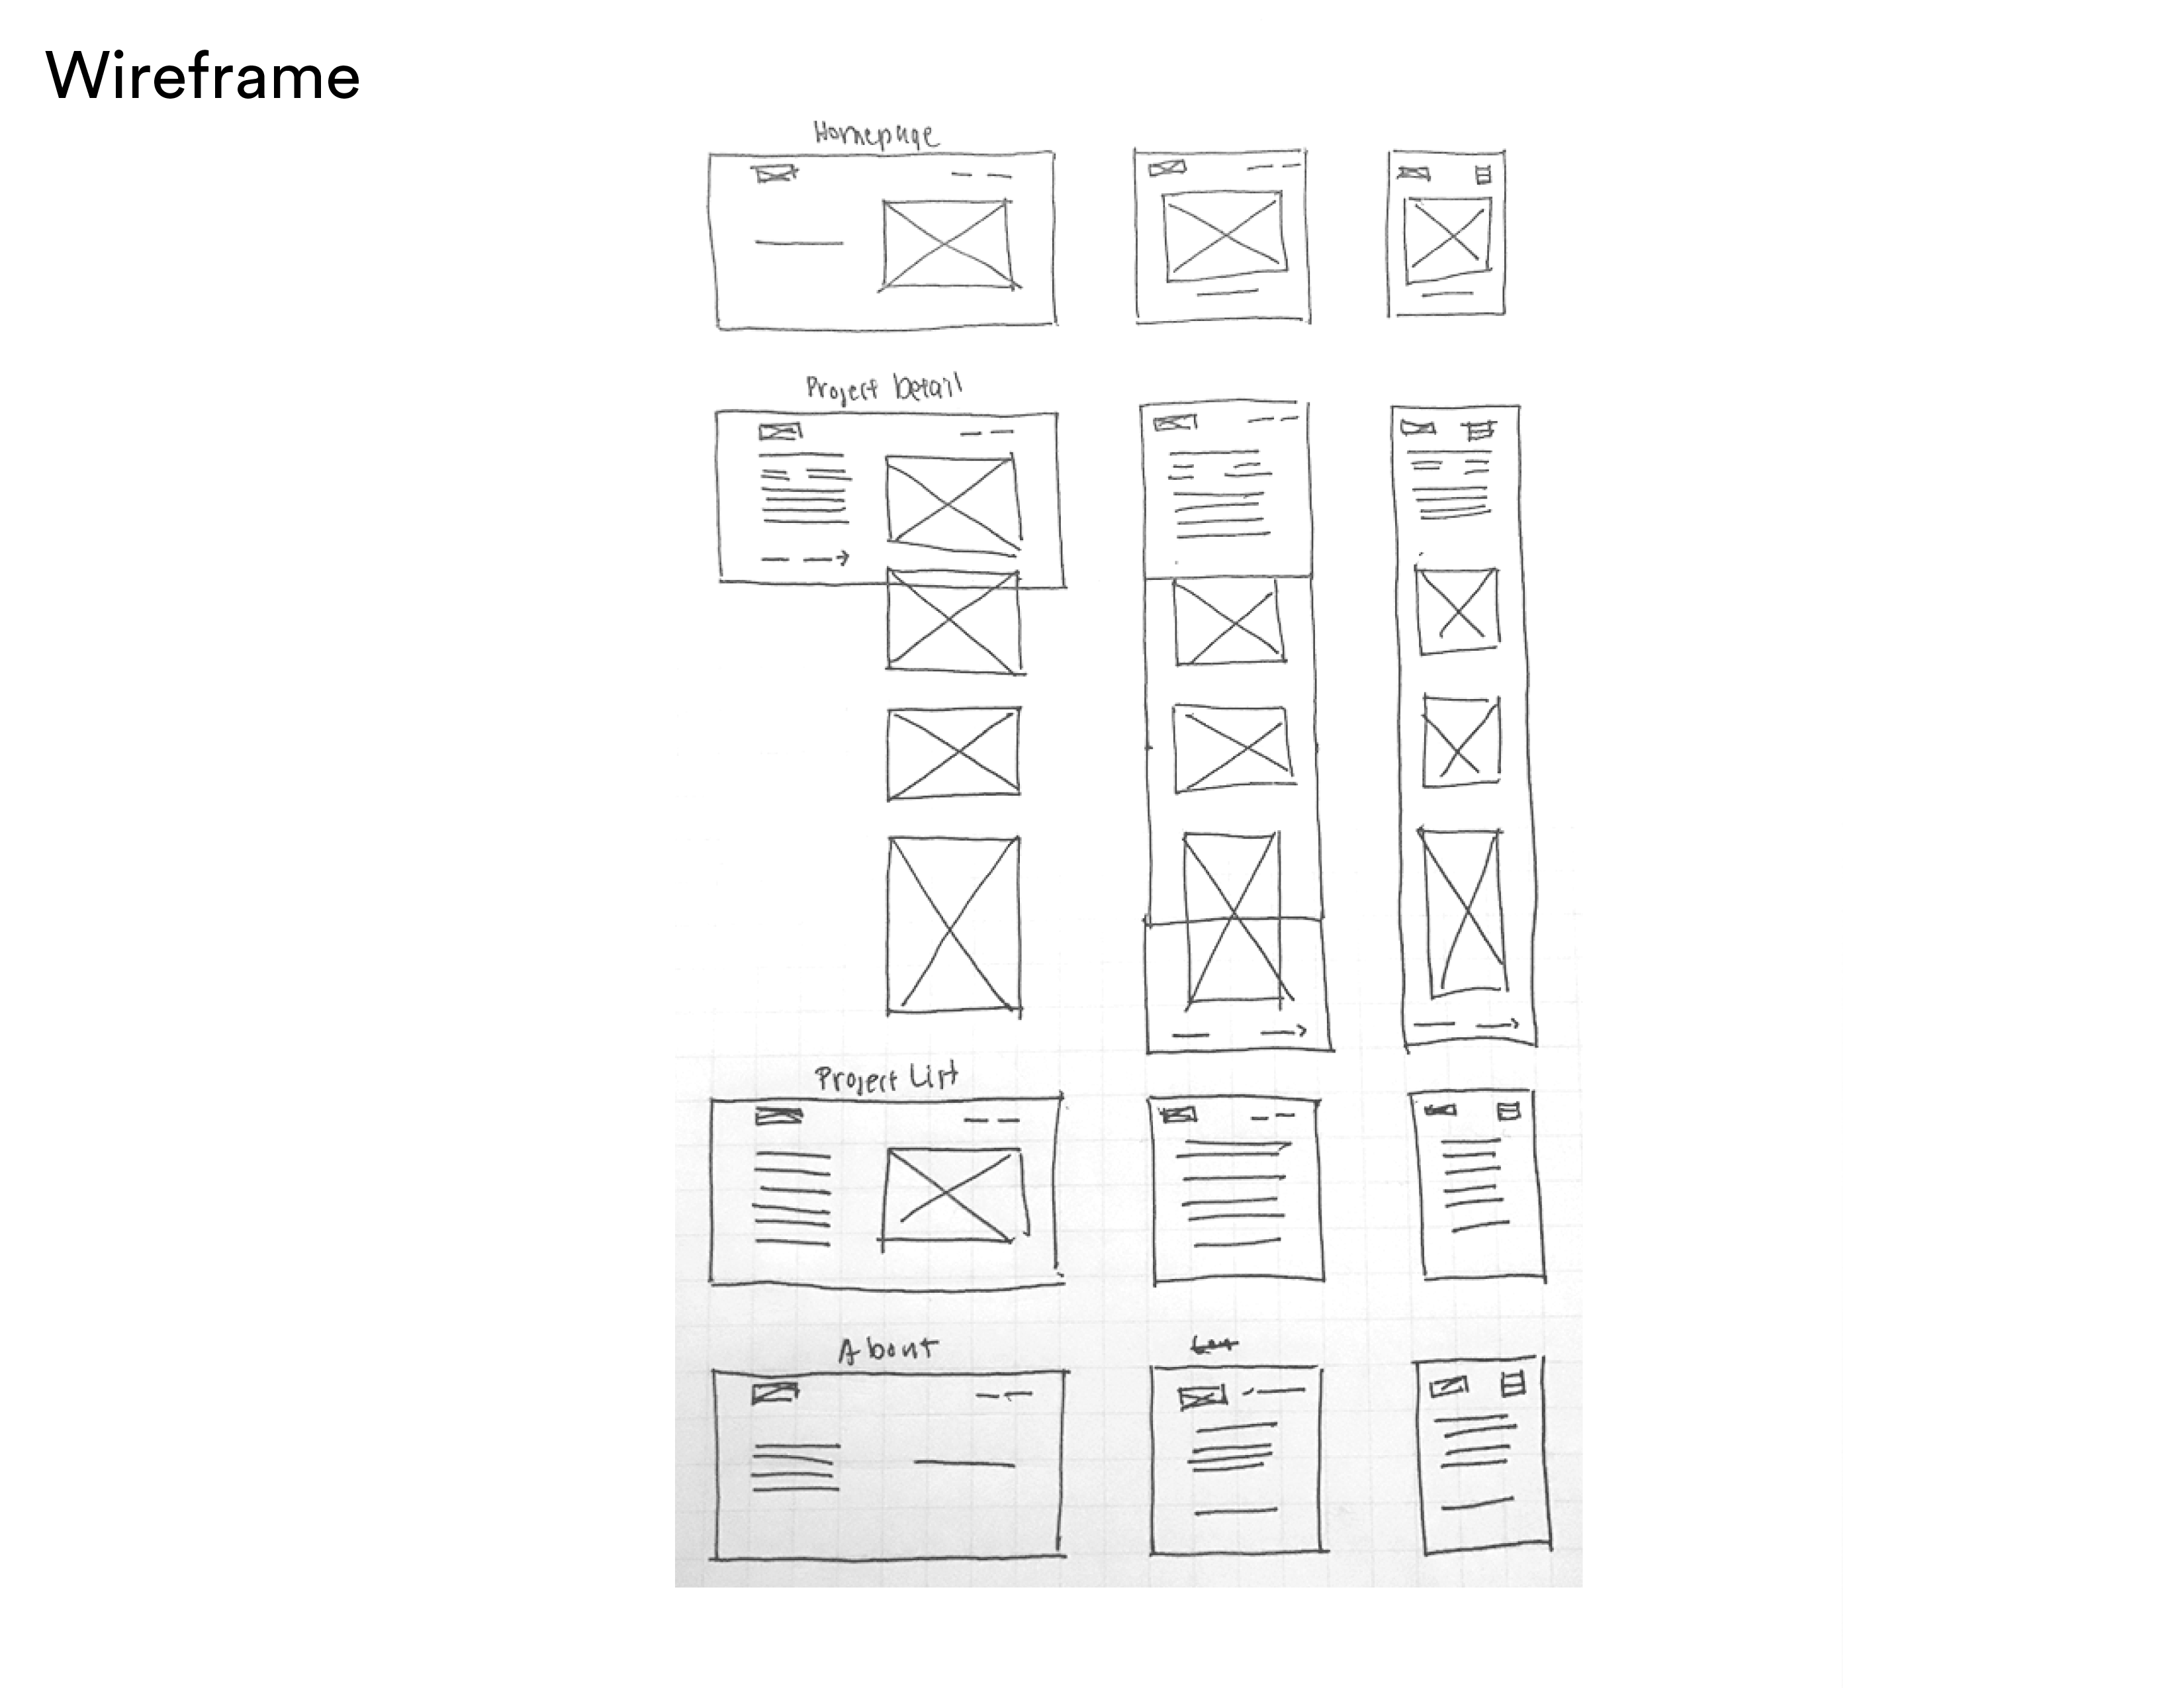 Wireframe
Homepage
Project Detail
Project List
About